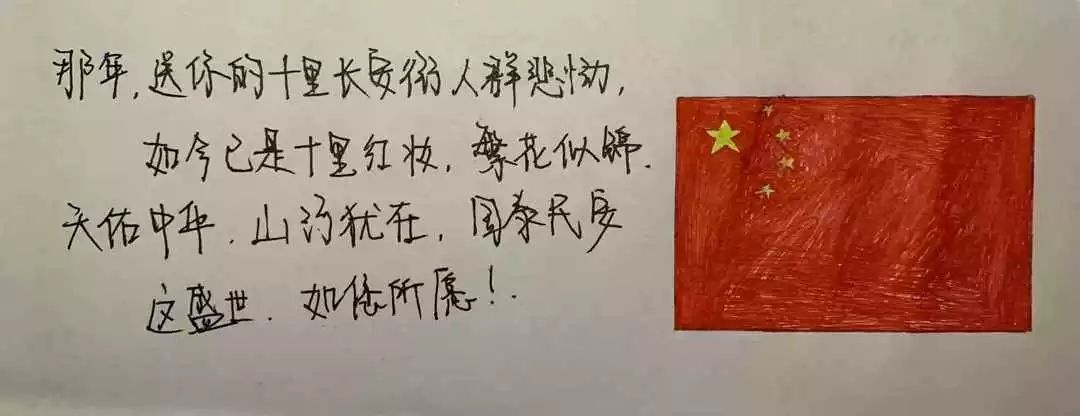 那年,送你的十里长安街人群悲恸,
如今已是十里红妆,繁花似锦.
天佑中华.山河犹在,国泰民安
这盛世.如您所愿!.